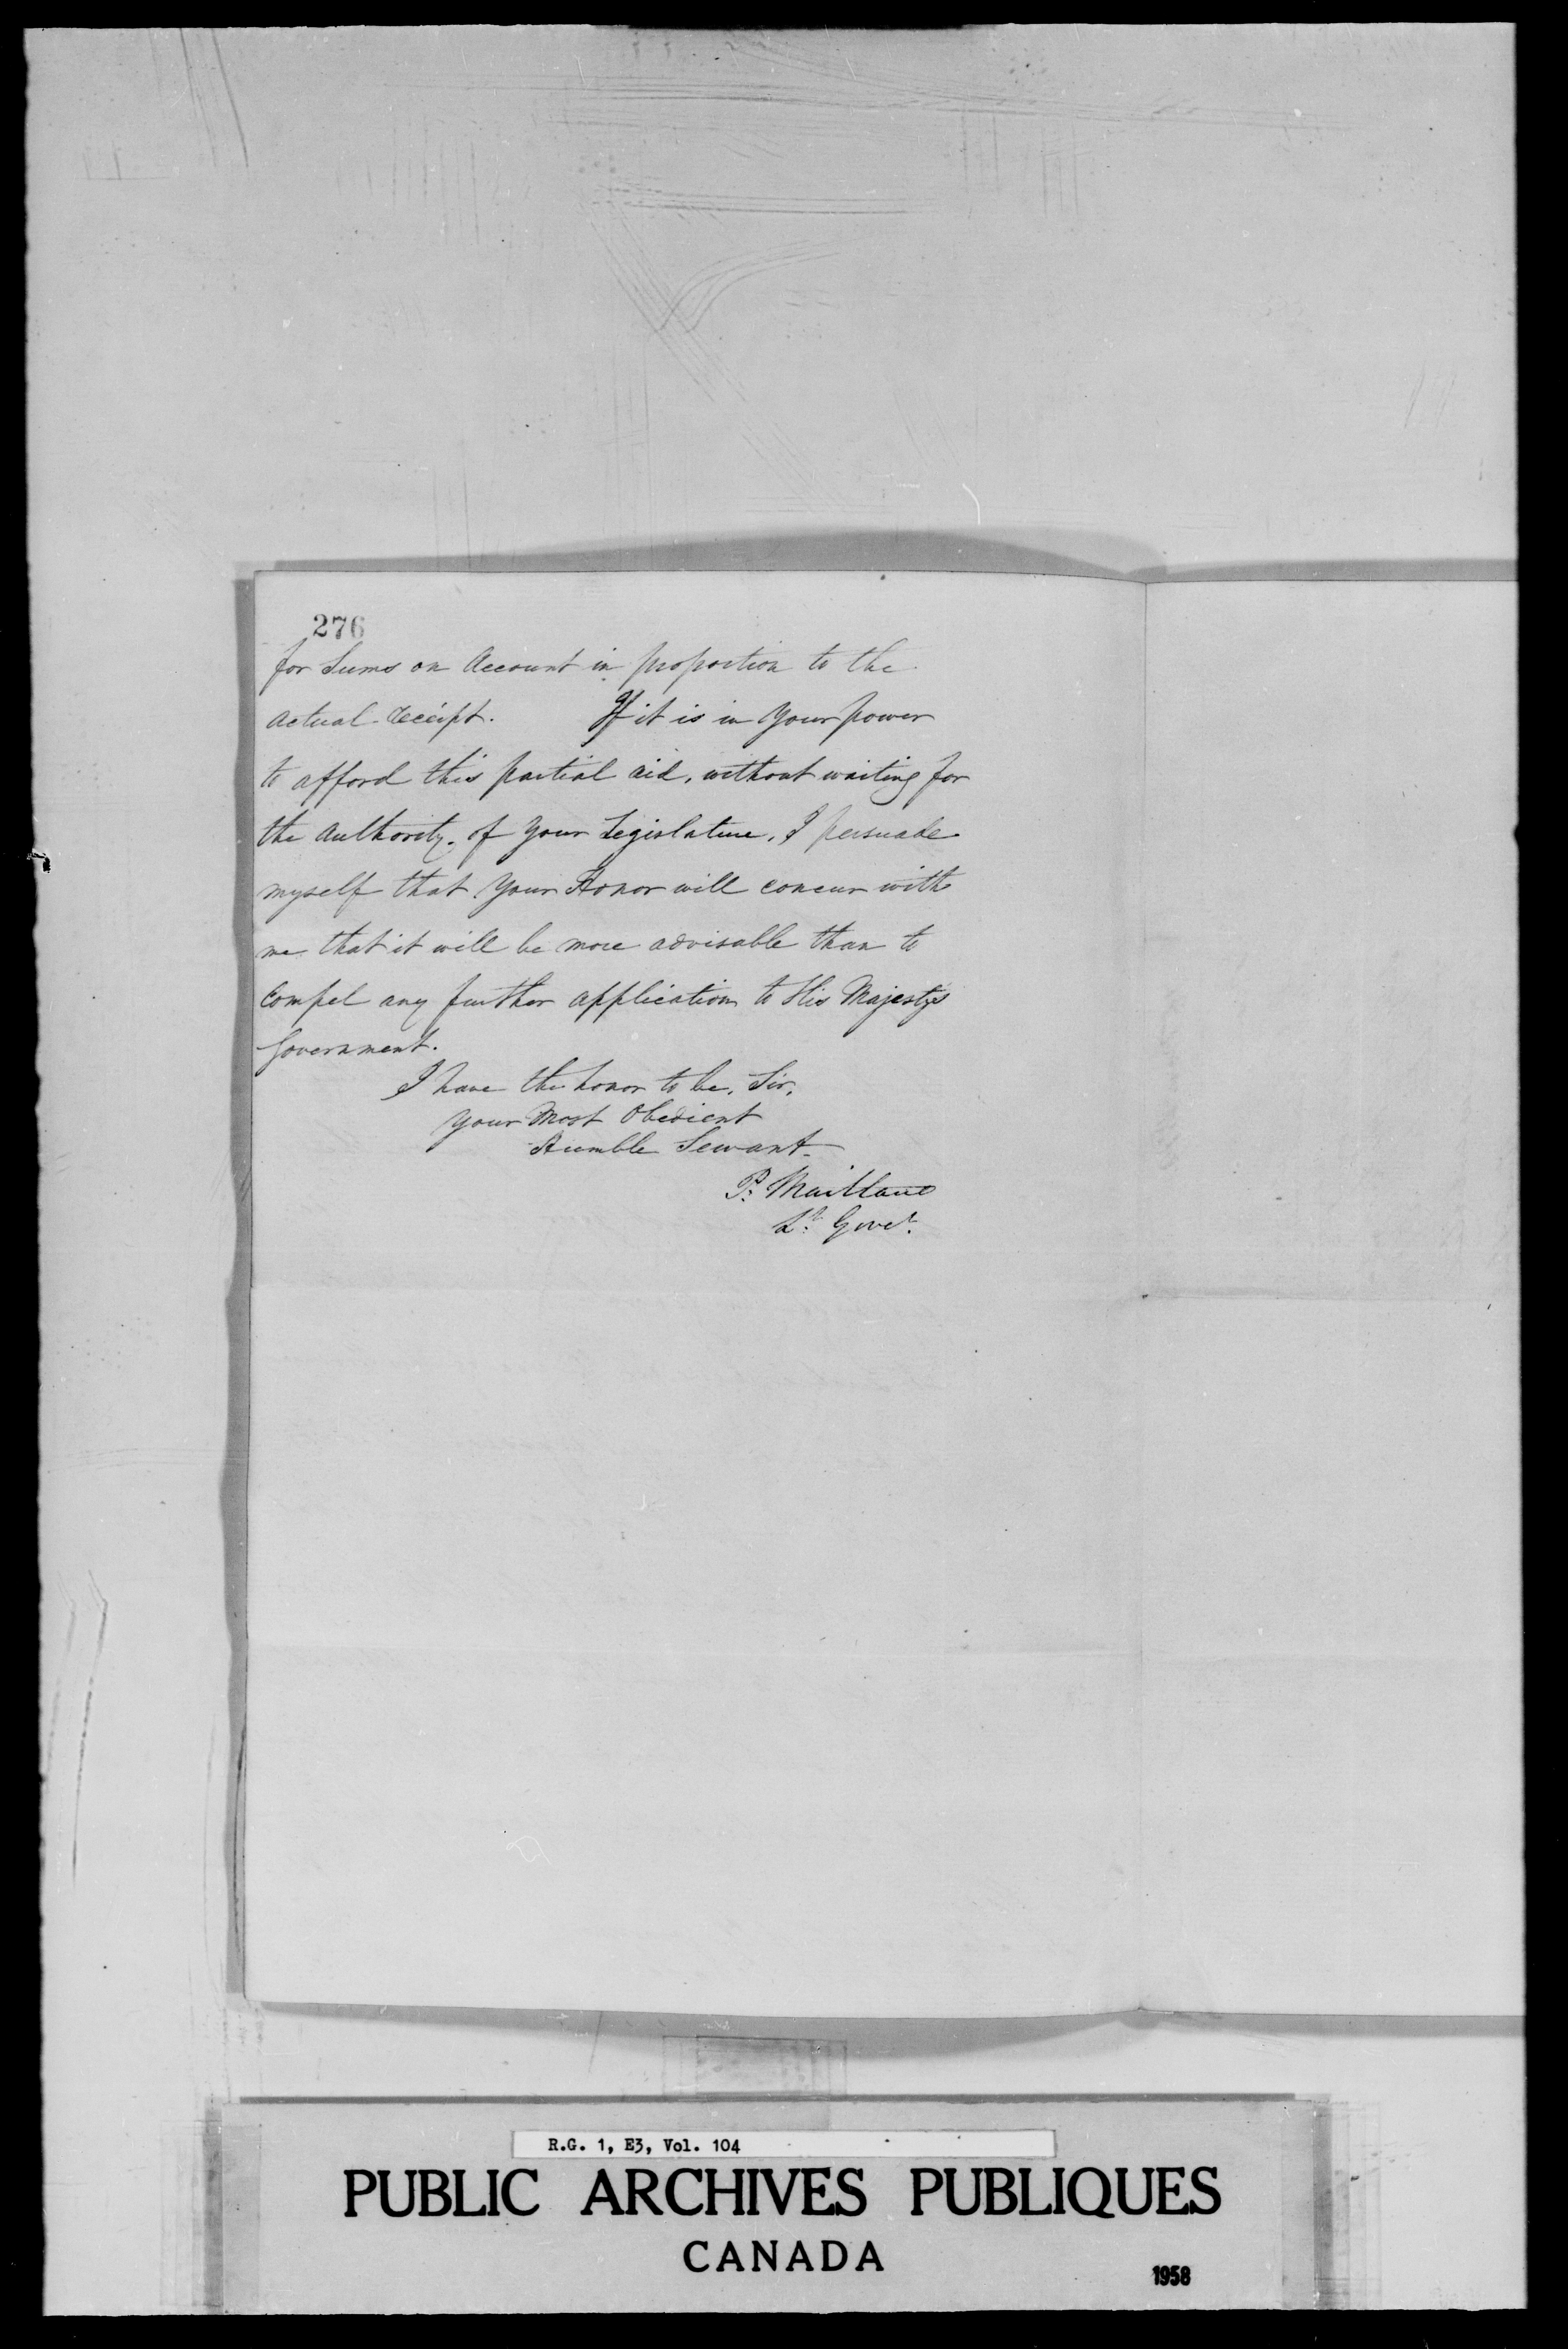 276
for Sums on Account in proportion to the
actual receipt. If it is in Your power
to afford this partial aid, without waiting for
the Authority of Your Legislature, I persuade
myself that Your Honor will concur with
me that it will be more advisable than to
Compel any further application to His Majesty's
Government.
I have the honor to be, Sir,
Your Most Obedient
Humble Servant
P: Maitland
Lt: Govr.
R.G. 1, E3, Vol. 104
PUBLIC ARCHIVES PUBLIQUES
CANADA
1958